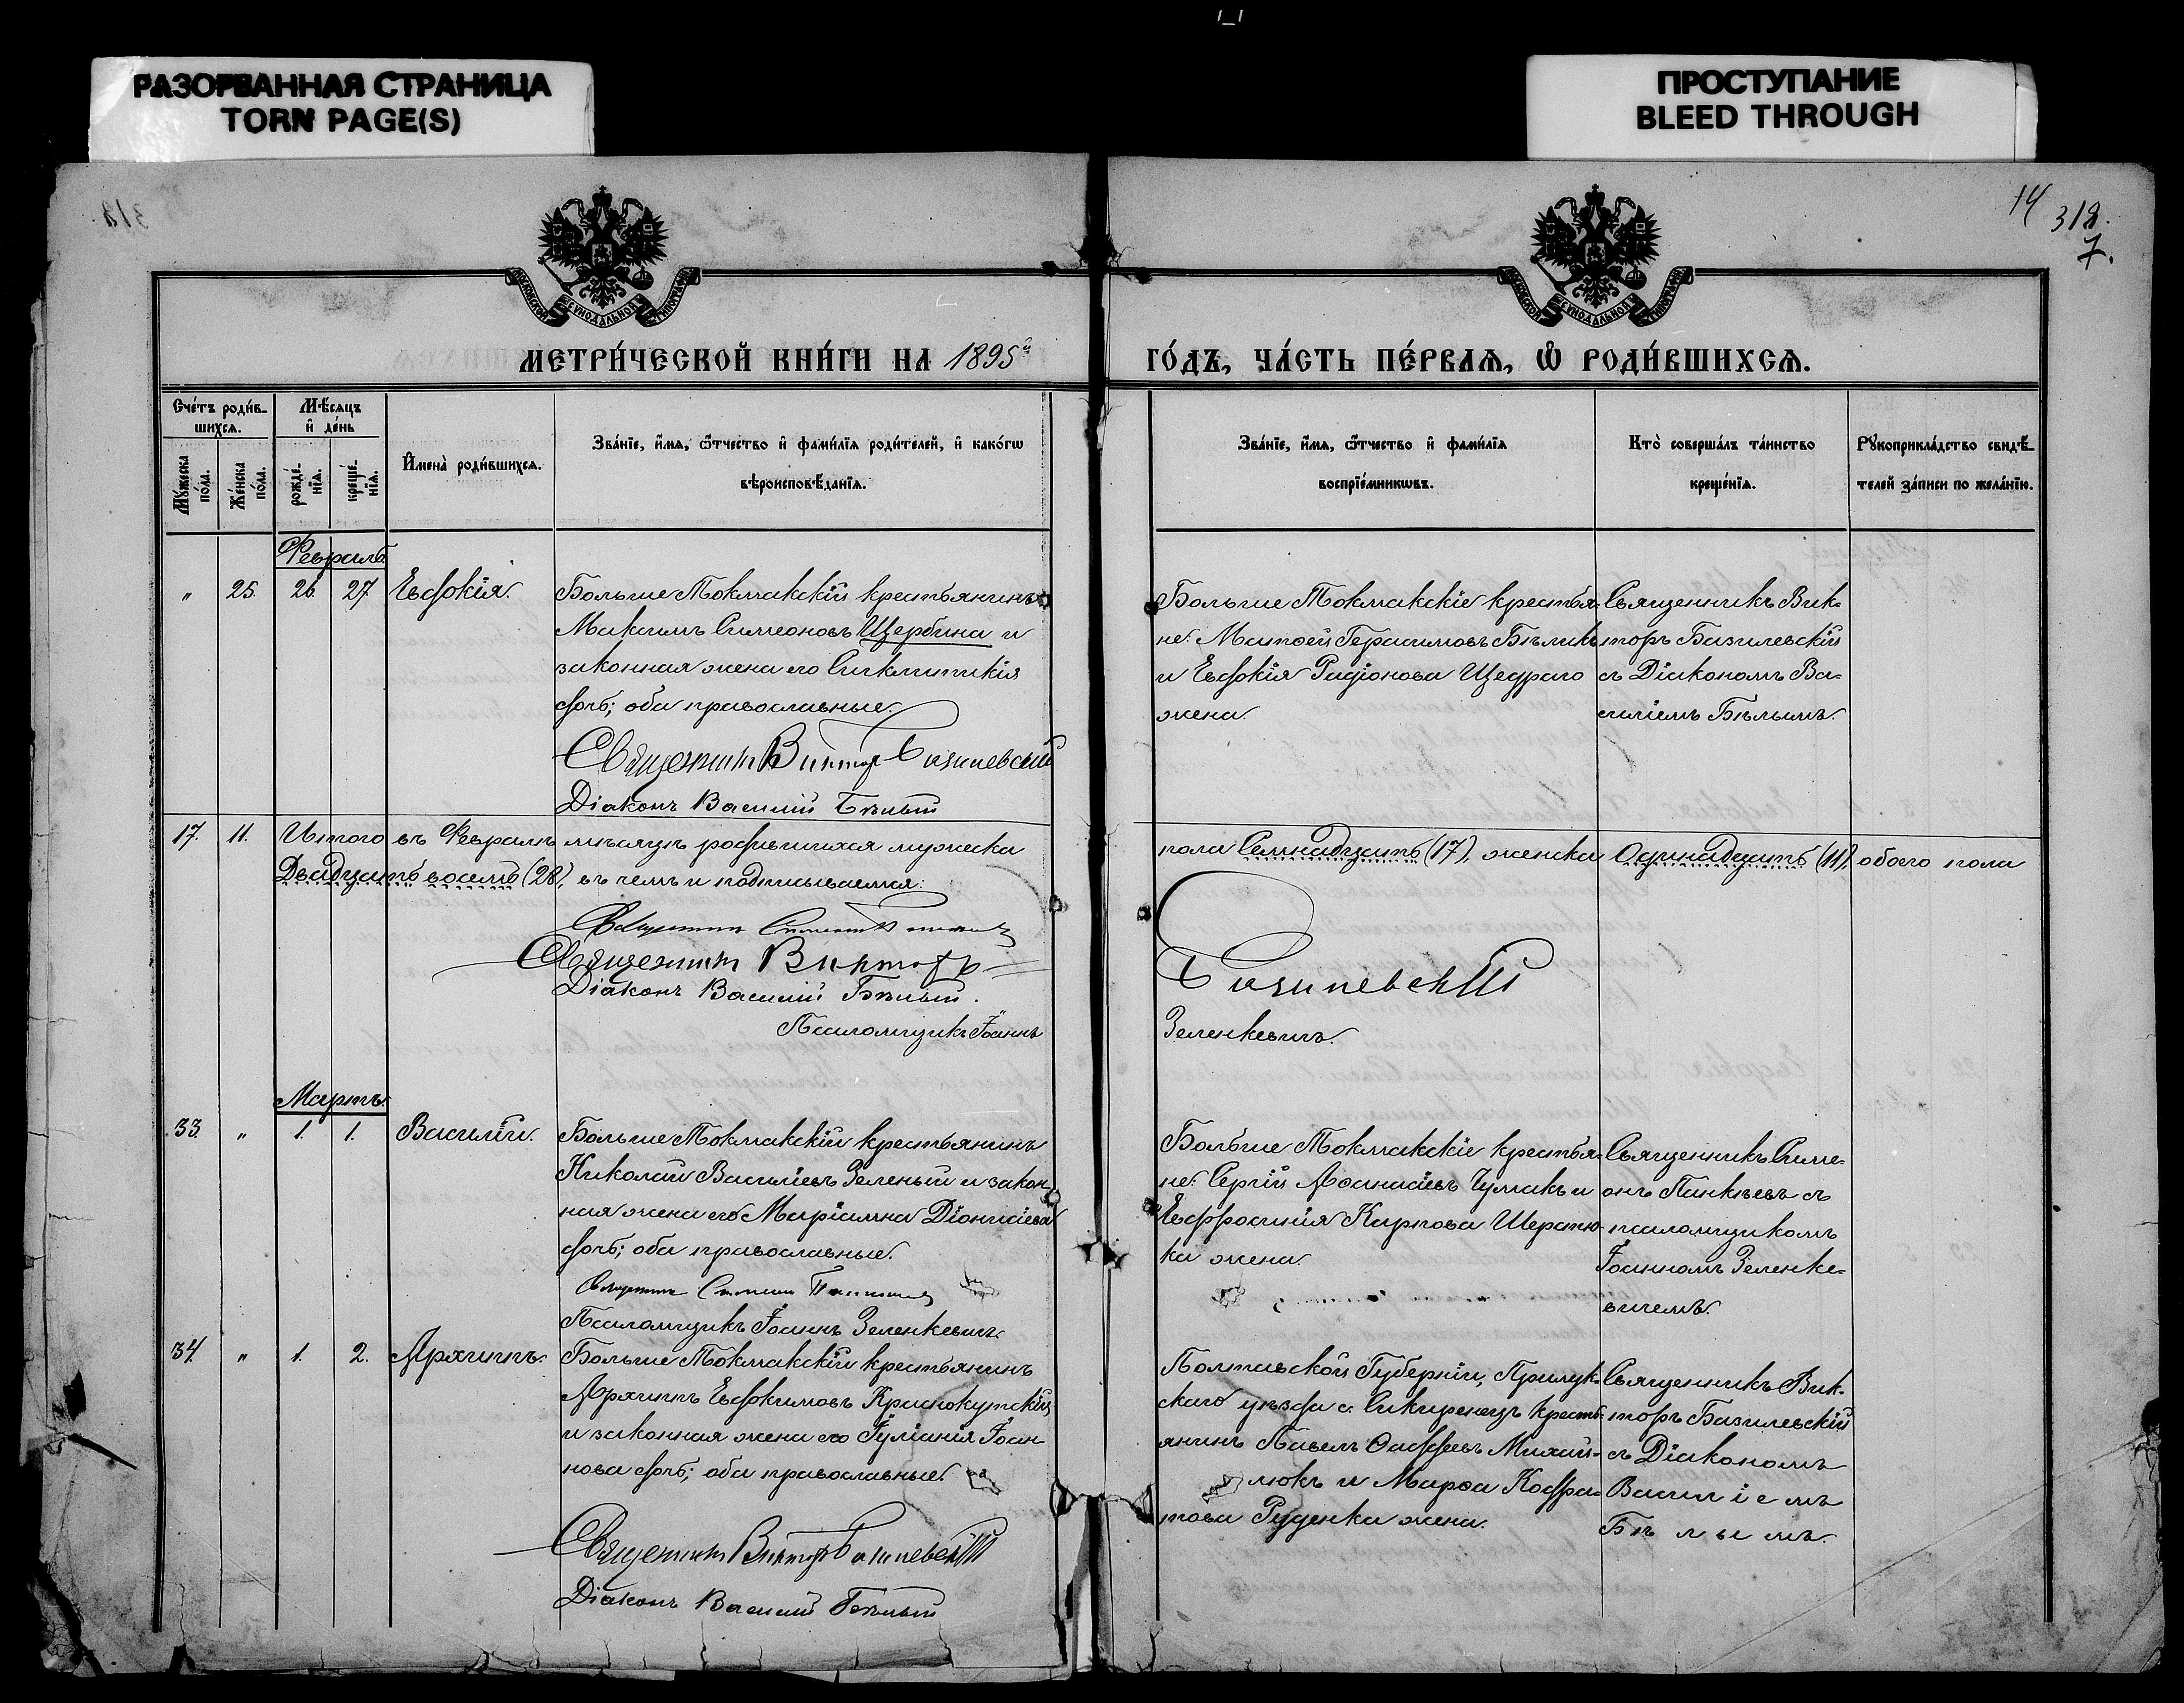 РАЗОРВАННАЯ СТРАНИЦА
TORN PAGE(S)
ПРОСТУПАНИЕ
BLEED THROUGH
14
312.
7.
МОСКОВСКОЙ СѴНОДАЛЬНОЙ ТИПОГРАФІИ
МОСКОВСКОЙ СѴНОДАЛЬНОЙ ТИПОГРАФІИ
МЕТРИ́ЧЕСКОЙ КНИ́ГИ НА 1895й
ГО́ДЪ, ЧА́СТЬ ПЕ́РВАѦ, Ѿ РОДИ́ВШИХСѦ.
Сче́тъ роди́в-
шихсѧ.
Мѣ́сѧцъ
и҆ де́нь
Мꙋ́жеска
по́ла.
Же́нска
по́ла.
рожде́-
нїѧ.
креще́-
нїѧ.
И҆мена̀ роди́вшихсѧ.
Зва́нїе, и҆́мѧ, ѻ҆́тчество и҆ фами́лїѧ роди́телей, и҆ како́гѡ
вѣроисповѣ́данїѧ.
Зва́нїе, и҆́мѧ, ѻ҆́тчество и҆ фами́лїѧ
воспрїе́мникѡвъ.
Кто̀ соверша́лъ та́инство
креще́нїѧ.
Рꙋкоприкла́дство свидѣ́-
телей за́писи по жела́нїю.
Февраль
" 25. 26. 27 Евдокія.
Больше Токмакскій крестьянинъ
Максимъ Симеоновъ Щербина и
законная жена его Синклитикія
дочь; оба православные.
Священникъ Викторъ Базилевскій
Діаконъ Василій Бѣлый
Больше Токмакскіе крестья-
не: Матѳей Герасимовъ Бѣликъ
и Евдокія Радіонова Щедраго
жена.
Священникъ Вик-
торъ Базилевскій
съ Діакономъ Ва-
силіемъ Бѣлымъ.
17. 11. Итого въ Февралѣ мѣсяцѣ родившихся мужеска
пола Семнадцать (17), женска Одинадцать (11), обоего пола
Двадцать восемь (28), въ чемъ и подписываемся:
Священникъ Симеонъ
Священникъ Викторъ
Базилевскій
Діаконъ Василій Бѣлый.
Псаломщикъ Іоаннъ
Зеленкевичъ.
Мартъ.
33. " 1. 1. Василій.
Больше Токмакскій крестьянинъ
Николай Василіевъ Зеленый и закон-
ная жена его Маріамна Діонисіева
дочь; оба православные.
Священникъ Симеонъ
Псаломщикъ Іоаннъ Зеленкевичъ.
Больше Токмакскіе крестья-
не: Сергій Аѳанасіевъ Чумакъ и
Евфросинія Карпова Шерстю-
ка жена.
Священникъ Симе-
онъ Панкѣевъ съ
псаломщикомъ
Іоанномъ Зеленке-
вичемъ.
34. " 1. 2. Архиппъ.
Больше Токмакскій крестьянинъ
Архиппъ Евдокимовъ Краснокутскій
и законная жена его Іуліанія Іоан-
нова дочь; оба православные.
Священникъ Викторъ Базилевскій
Діаконъ Василій Бѣлый
Полтавской Губерніи, Прилук-
скаго уѣзда с. Сикиренецъ кресть-
янинъ Павелъ Ѳаддеевъ Михай-
люкъ и Марѳа Кодра-
това Руденка жена.
Священникъ Вик-
торъ Базилевскій
съ Діакономъ
Василіемъ
Бѣлымъ.